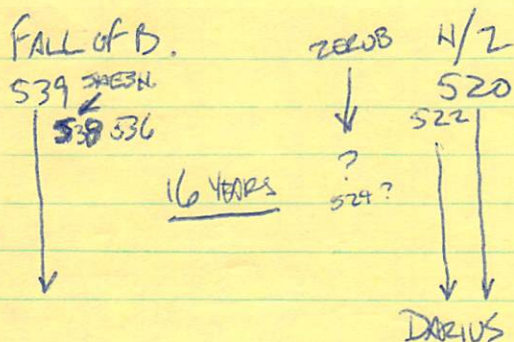 FALL OF B. ZERUB H/Z
539 520
538 536 522
?
16 YEARS 524?
DARIUS